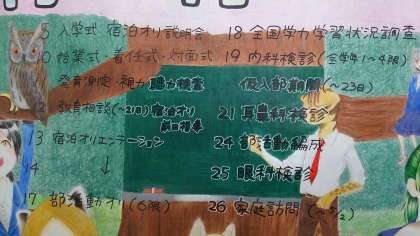 5 入学式 宿泊オリ説明会
10 始業式・着任式・対面式
発育測定・視力聴力検査
12 教育相談(~21日) 宿泊オリ
前日指導
13 宿泊オリエンテーション
14 ↓
17 部活動オリ(6限)
18 全国学力学習状況調査
19 内科検診(全学年1~4限)
仮入部期間(~23日)
21 耳鼻科検診
24 部活動編成
25 眼科検診
26 家庭訪問(~5/2)